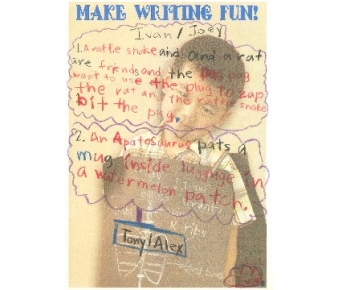 MAKE WRITING FUN!
Ivan / Joey
1. A rattle snake and and a rat
are friends and the pug
want to use the plug to zap
the rat and the rattle snake
bit the pug.
2. An Apatosaurus pats a
mug inside luggage in
a watermelon patch.
ribs
Tony/Alex